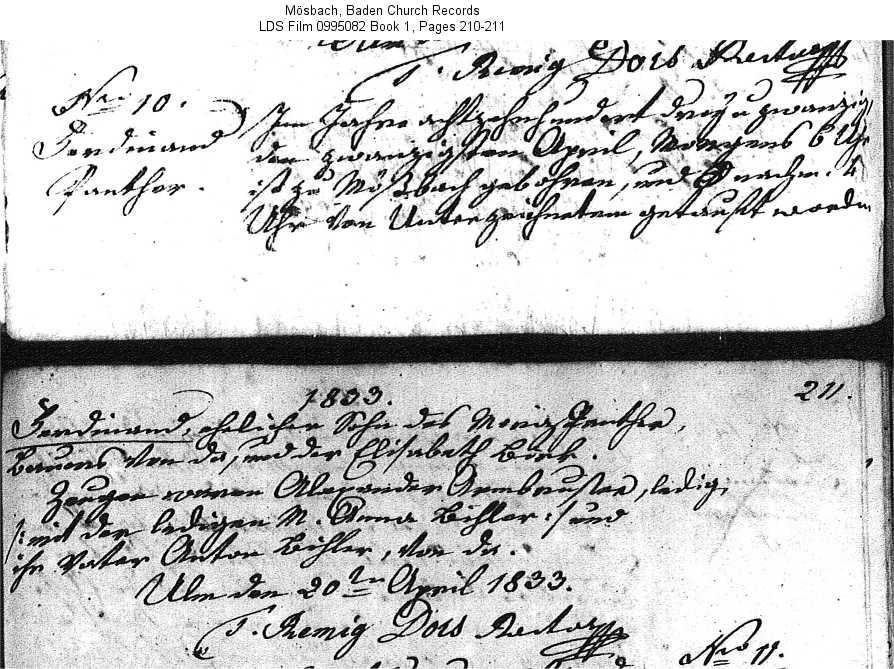 Mösbach, Baden Church Records
LDS Film 0995082 Book 1, Pages 210-211
T. Remig Dors Rector
Nro 10.
Ferdinand
Panther.
Im Jahre achtzehnhundert drey u zwanzig,
den zwanzigsten April, Morgens 6 Uhr
ist zu Mösbach gebohren, und nachm. 4
Uhr von Unterzeichnetem getauft worden
1833.
211.
Ferdinand, ehelicher Sohn des Panther,
Bauers von da, und der Elisabeth Bork.
Zeugen waren Alexander Armbruster, ledig,
/: mit der ledigen M. Anna Bihler :/ und
ihr Vater Anton Bihler, von da.
Ulm den 20ten April 1833.
T. Remig Dors Rector
Nro 11.